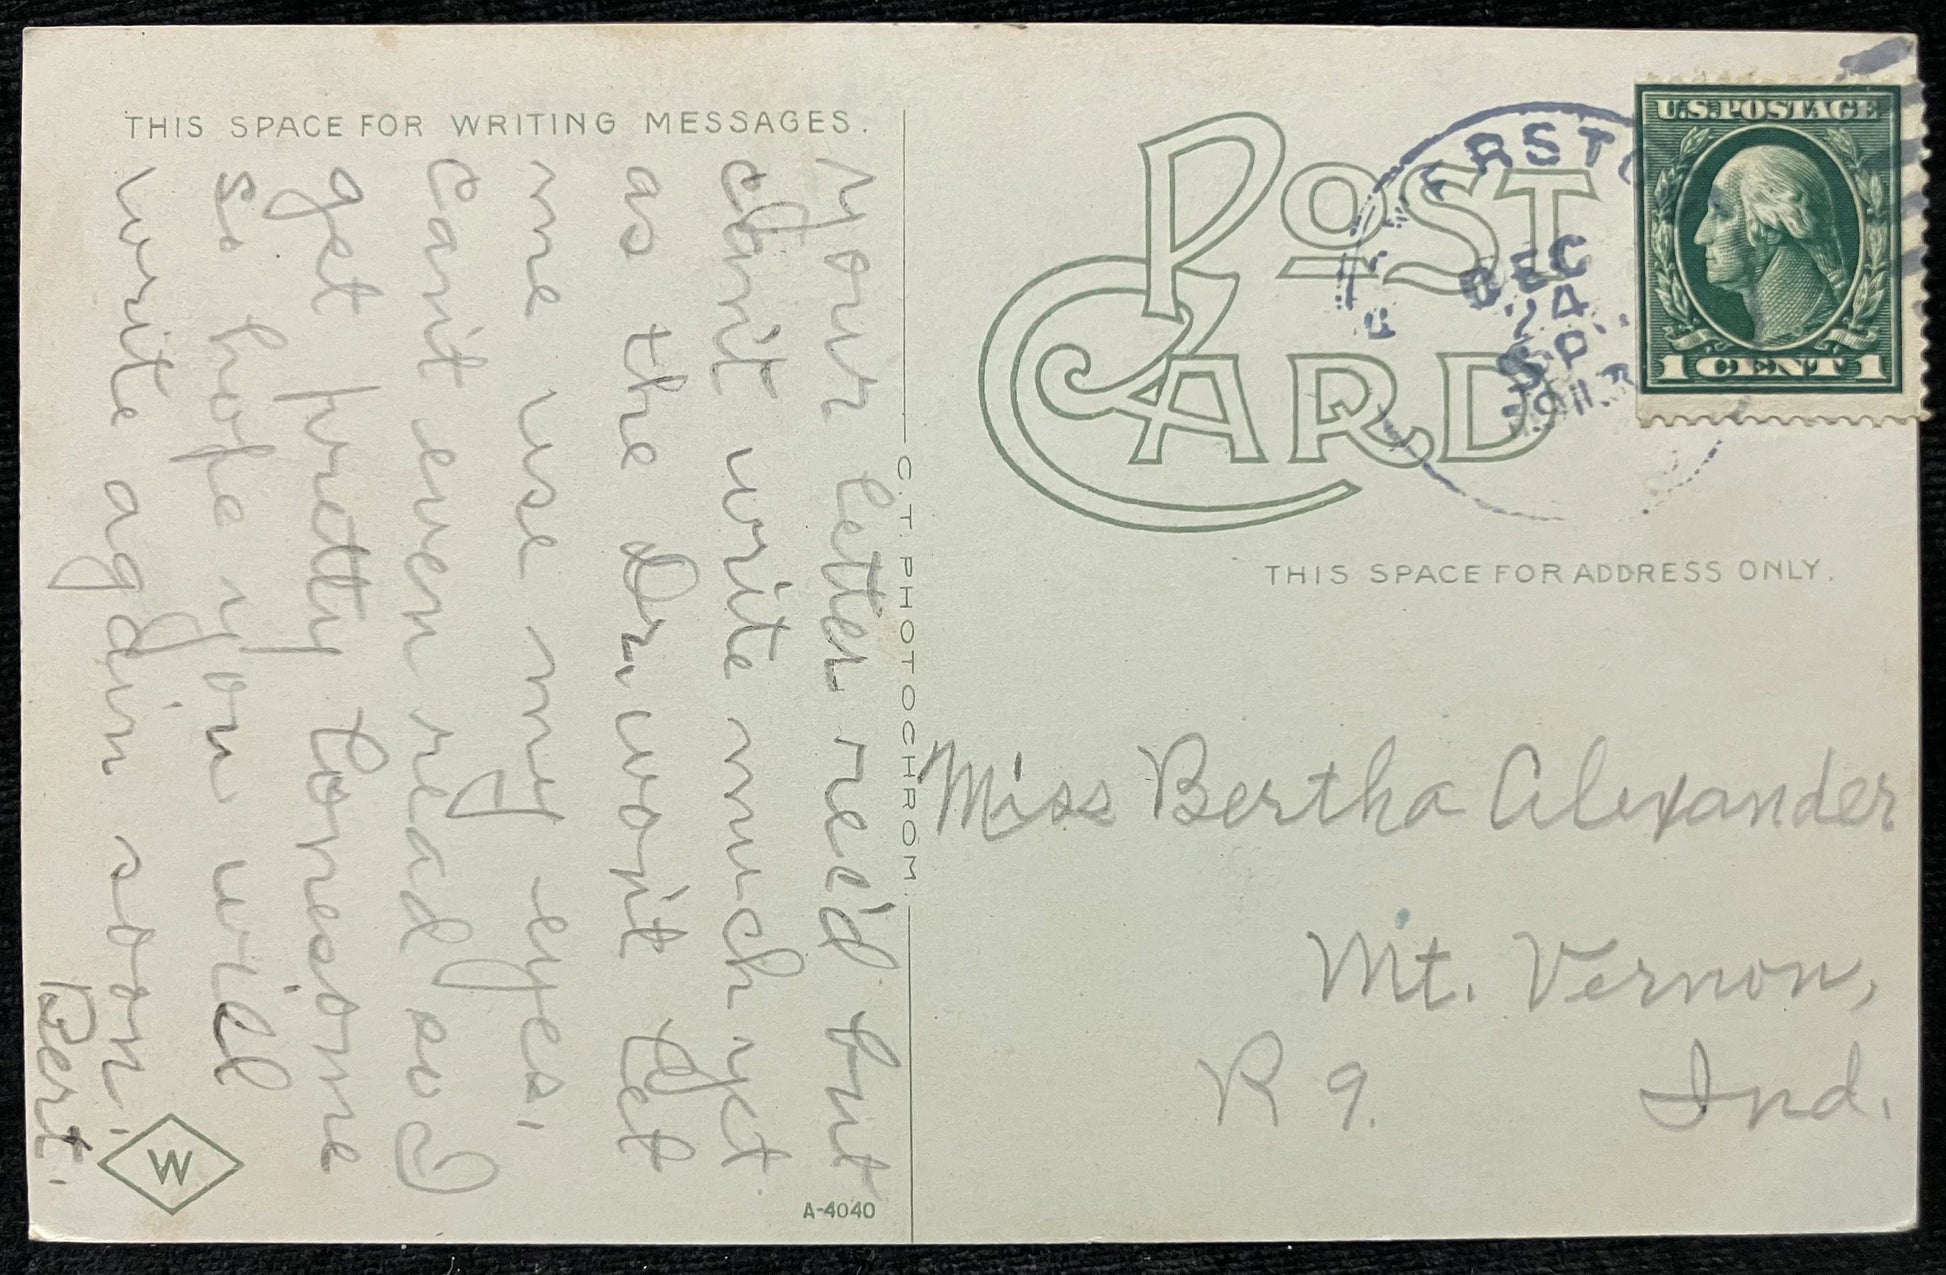 THIS SPACE FOR WRITING MESSAGES.
Your letter rec'd but
can't write much yet
as the Dr. won't let
me use my eyes.
Can't even read so I
get pretty lonesome
so hope you will
write again soon.
Bert.
W
A-4040
C.T. PHOTOCHROM.
POST
CARD
DEC
24
5 P
1911
U.S. POSTAGE
1 CENT 1
THIS SPACE FOR ADDRESS ONLY.
Miss Bertha Alexander
Mt. Vernon,
R 9. Ind.